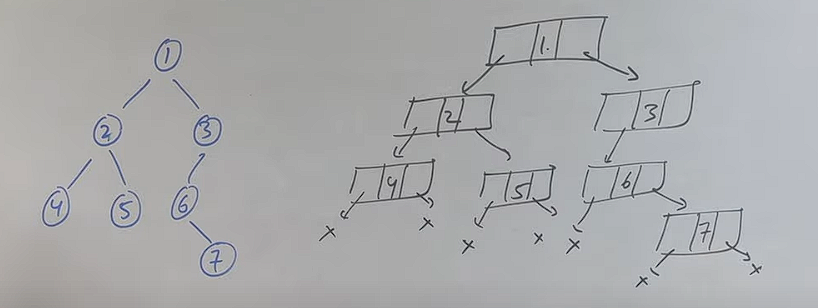 1
2 3
4 5 6
7
1.
2 3
4 5 6
x x x x x
7
x x